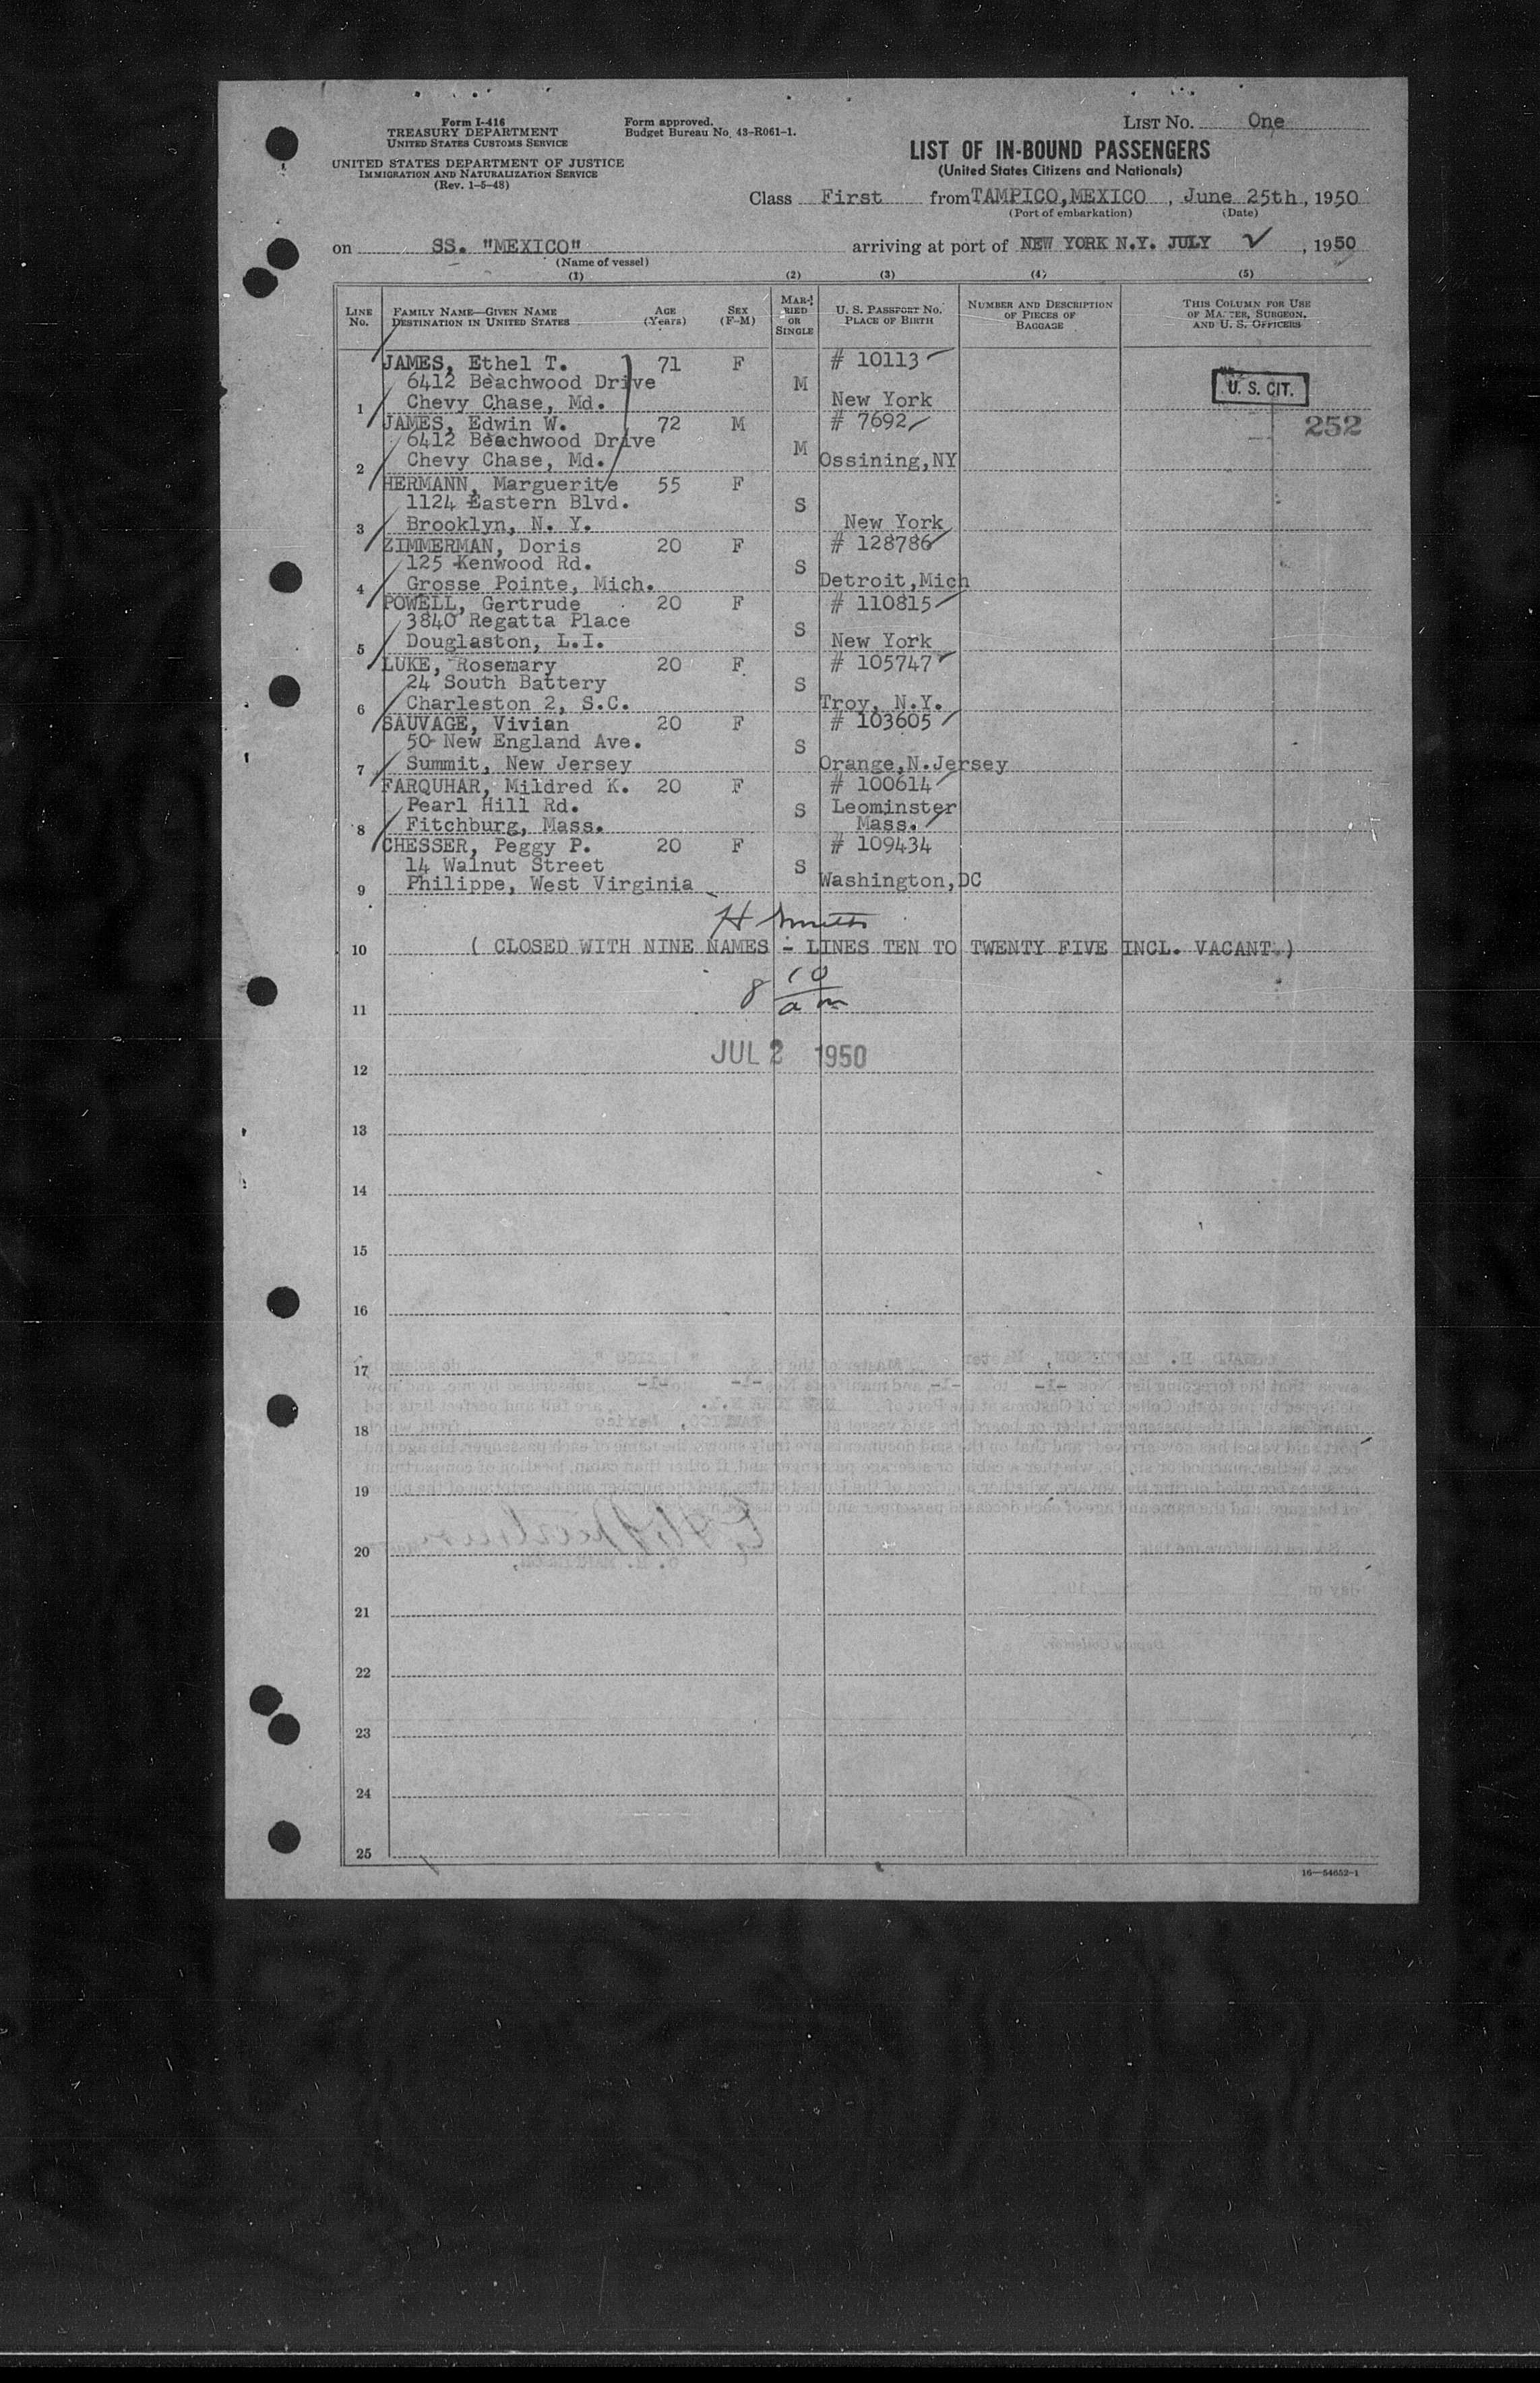 Form I-416
TREASURY DEPARTMENT
UNITED STATES CUSTOMS SERVICE
UNITED STATES DEPARTMENT OF JUSTICE
IMMIGRATION AND NATURALIZATION SERVICE
(Rev. 1-5-48)
Form approved.
Budget Bureau No. 43-R061-1.
LIST NO. One
LIST OF IN-BOUND PASSENGERS
(United States Citizens and Nationals)
Class First from TAMPICO, MEXICO, June 25th, 1950
(Port of embarkation) (Date)
on SS. "MEXICO" arriving at port of NEW YORK N.Y. JULY , 1950
(Name of vessel)
(1) (2) (3) (4) (5)
LINE NO. FAMILY NAME—GIVEN NAME DESTINATION IN UNITED STATES AGE (Years) SEX (F-M) MARRIED OR SINGLE U. S. PASSPORT NO. PLACE OF BIRTH NUMBER AND DESCRIPTION OF PIECES OF BAGGAGE THIS COLUMN FOR USE OF MASTER, SURGEON, AND U. S. OFFICERS
JAMES, Ethel T. 71 F # 10113
6412 Beachwood Drive M U. S. CIT.
1 Chevy Chase, Md. New York
JAMES, Edwin W. 72 M # 7692 252
6412 Beachwood Drive M
2 Chevy Chase, Md. Ossining,NY
HERMANN, Marguerite 55 F
1124 Eastern Blvd. S
3 Brooklyn, N. Y. New York
ZIMMERMAN, Doris 20 F # 128786
125 Kenwood Rd. S
4 Grosse Pointe, Mich. Detroit,Mich
POWELL, Gertrude 20 F # 110815
3840 Regatta Place S
5 Douglaston, L.I. New York
LUKE, Rosemary 20 F # 105747
24 South Battery S
6 Charleston 2, S.C. Troy, N.Y.
SAUVAGE, Vivian 20 F # 103605
50 New England Ave. S
7 Summit, New Jersey Orange,N.Jersey
FARQUHAR, Mildred K. 20 F # 100614
Pearl Hill Rd. S Leominster
8 Fitchburg, Mass. Mass.
CHESSER, Peggy P. 20 F # 109434
14 Walnut Street S
9 Philippe, West Virginia Washington,DC
H Smith
10 ( CLOSED WITH NINE NAMES - LINES TEN TO TWENTY FIVE INCL. VACANT )
8 10 am
11
JUL 2 1950
12
13
14
15
16
17
18
19
20
21
22
23
24
25
16—54652-1